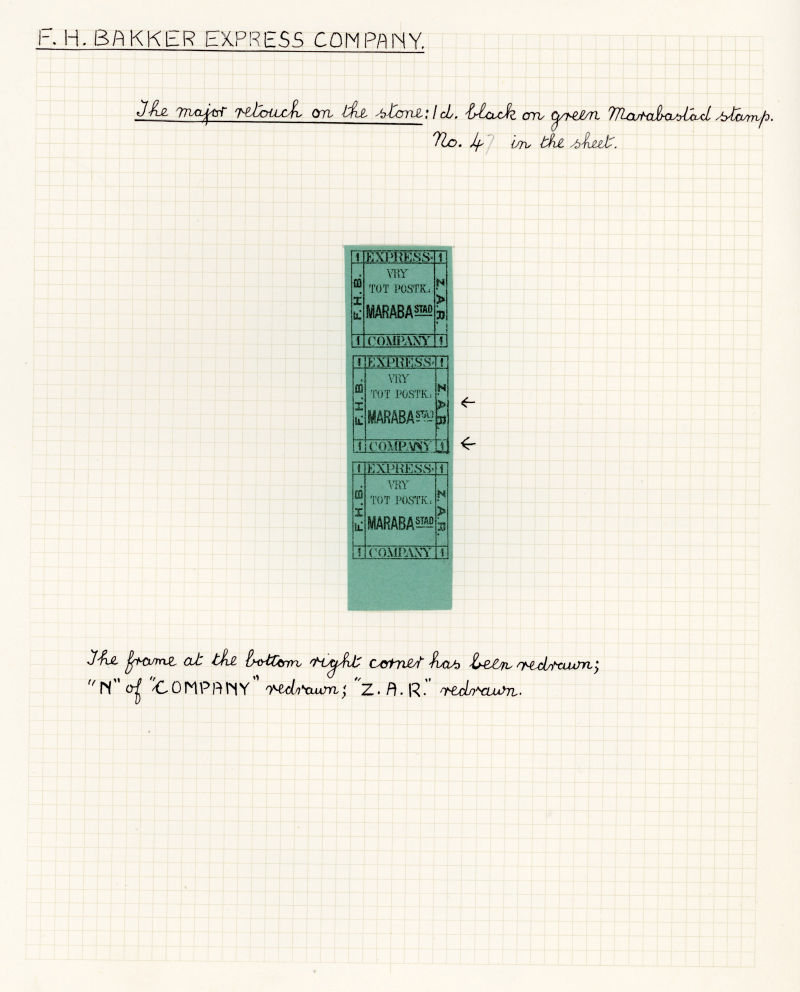 F. H. BAKKER EXPRESS COMPANY.
The major retouch on the stone: 1d. black on green Marabastad stamp.
No. 47 in the sheet.
1 EXPRESS- 1
VRY
TOT POSTK:
MARABASTAD
F. H. B.
Z. A. R.
1 COMPANY 1
1 EXPRESS- 1
VRY
TOT POSTK:
MARABASTAD
F. H. B.
Z. A. R.
1 COMPANY 1
1 EXPRESS- 1
VRY
TOT POSTK:
MARABASTAD
F. H. B.
Z. A. R.
1 COMPANY 1
The frame at the bottom right corner has been redrawn;
"N" of "COMPANY" redrawn; "Z. A. R." redrawn.